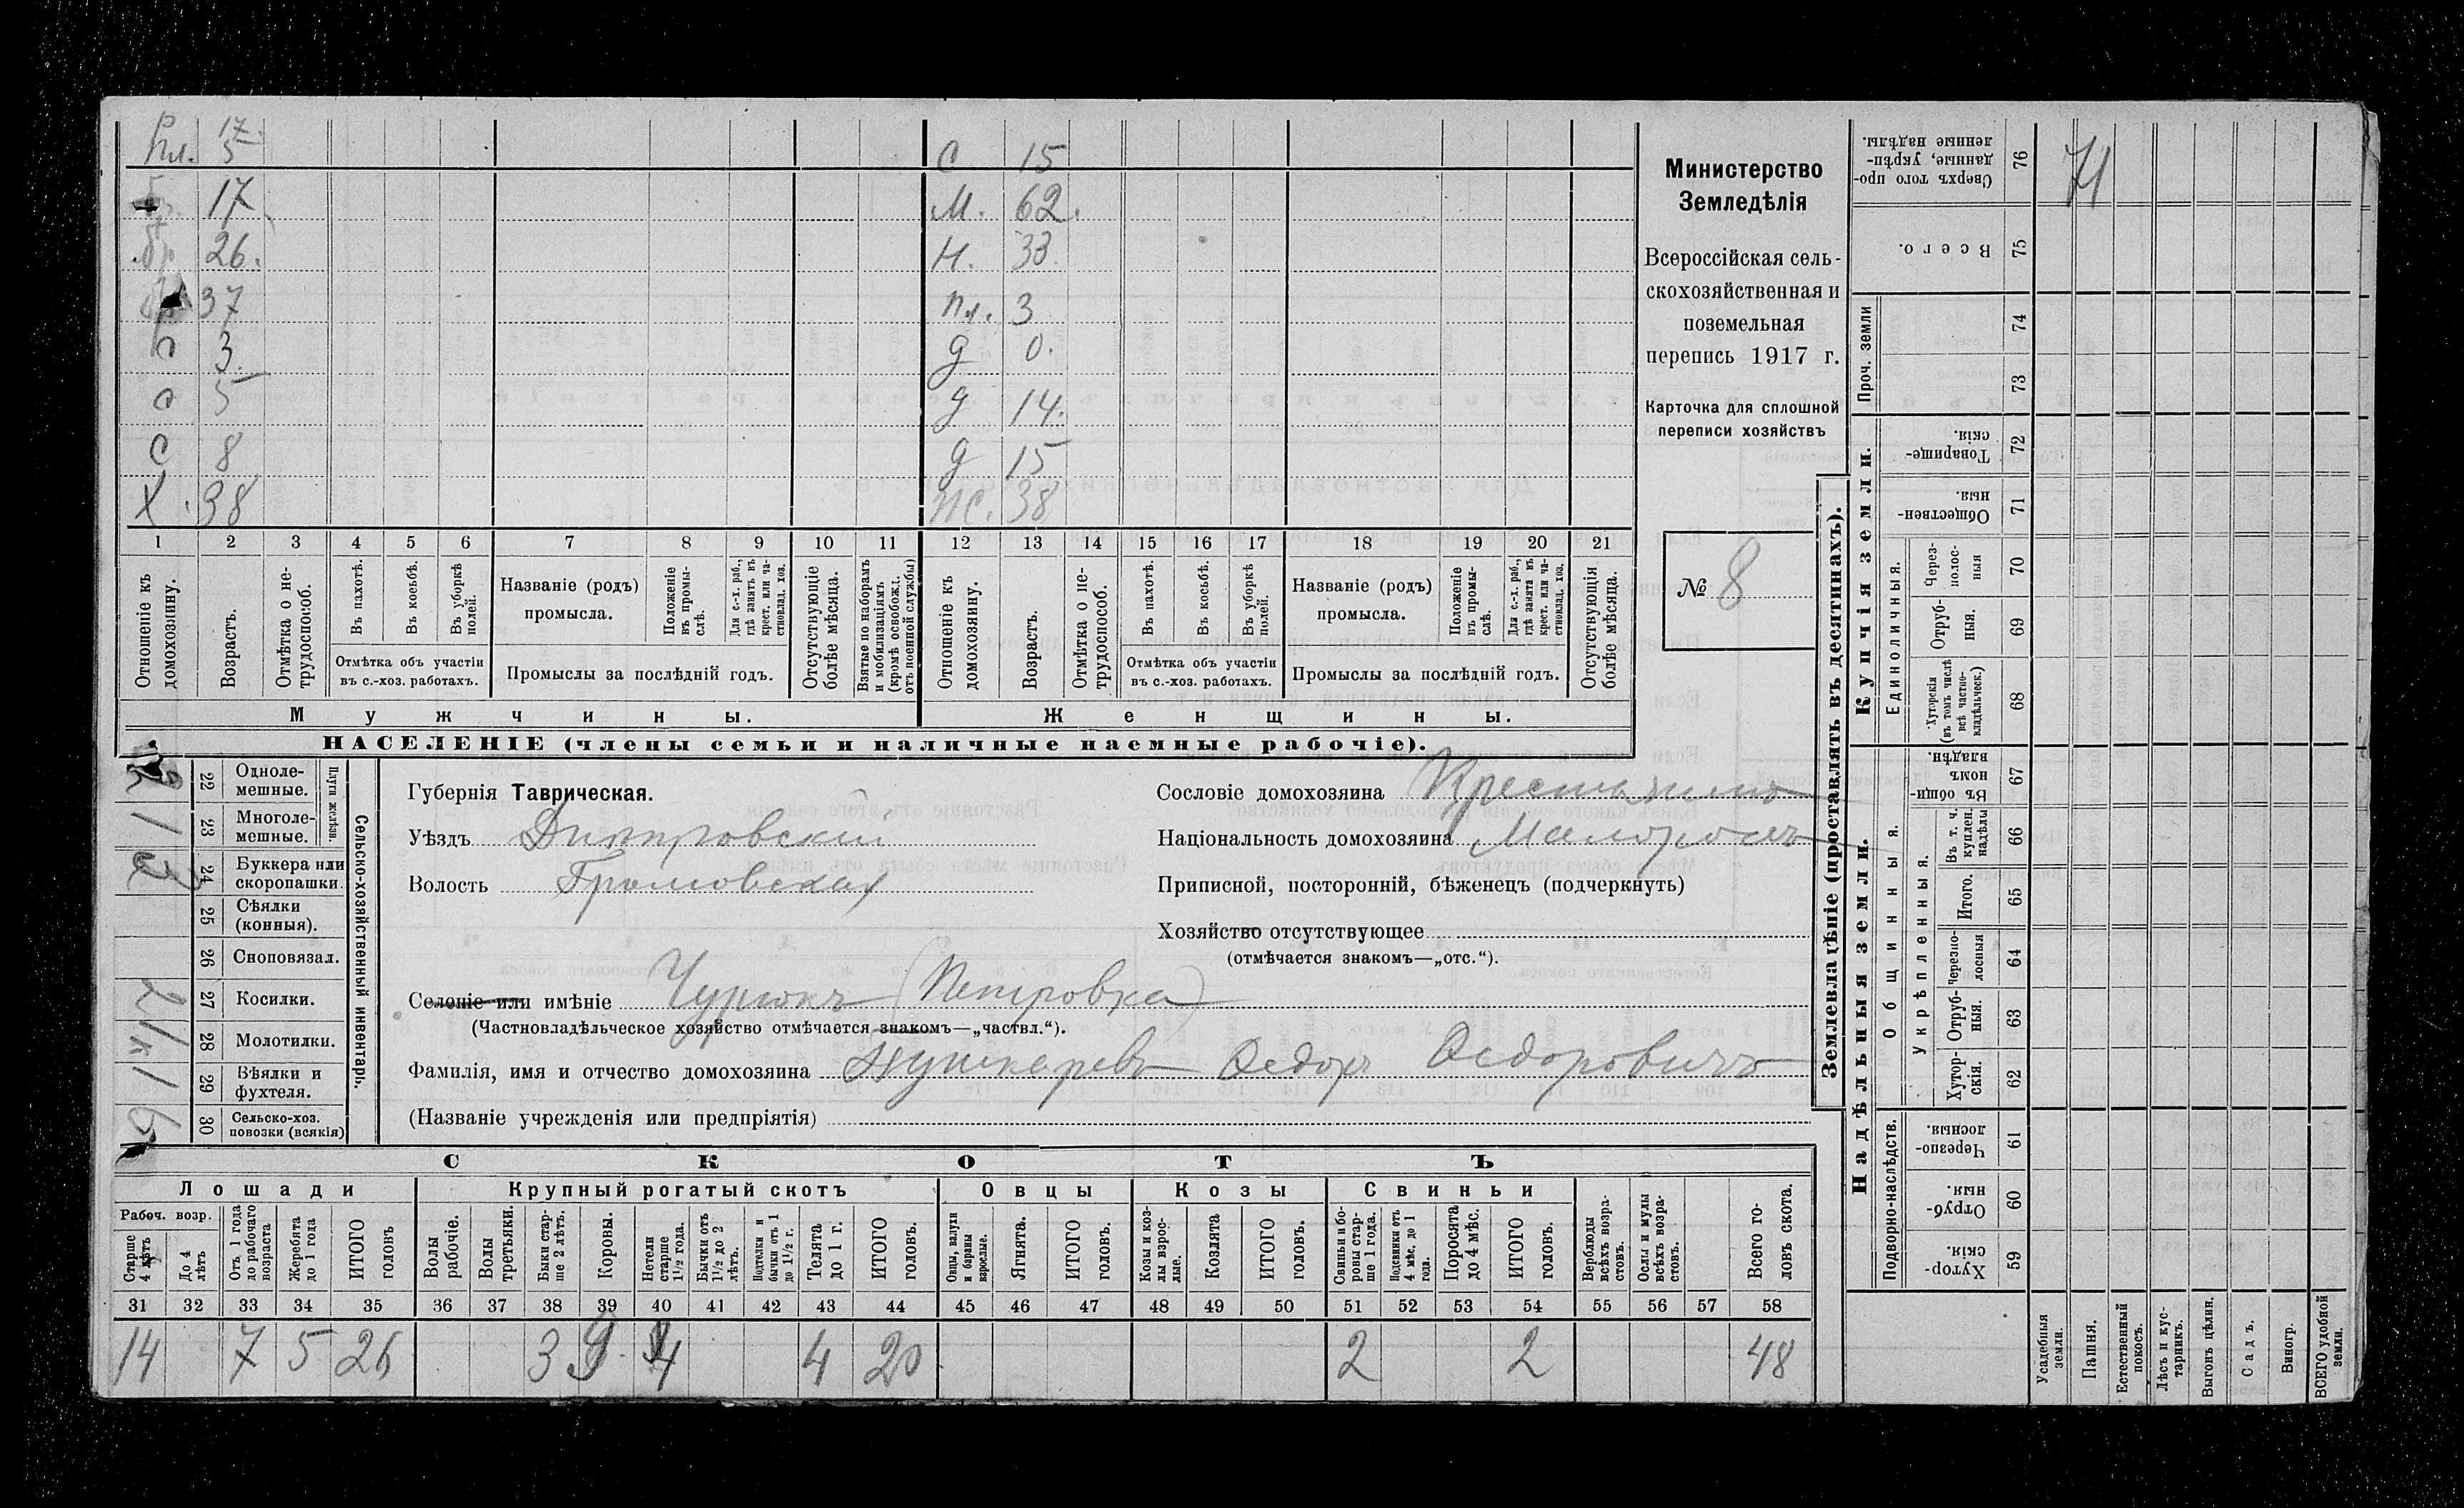 Рл. 17.
пл. 5
С 15
бр. 17
М. 62.
бр 26.
Н. 33.
37
пл. 3
п 3.
д 0.
с 5
д 14.
С 8
д 15
Х. 38
Ж. 38
1 2 3 4 5 6 7 8 9 10 11 12 13 14 15 16 17 18 19 20 21
Отношеніе къ домохозяину.
Возрастъ.
Отмѣтка о не-трудоспособ.
Въ пахотѣ.
Въ косьбѣ.
Въ уборкѣ полей.
Отмѣтка объ участіи въ с.-хоз. работахъ.
Названіе (родъ) промысла.
Положеніе въ промы-слѣ.
Для с.-х. раб., гдѣ занятъ въ крест. или ча-стновлад. хоз.
Промыслы за послѣдній годъ.
Отсутствующіе болѣе мѣсяца.
Взятые по наборамъ и мобилизаціямъ (кромѣ освобожд. отъ военной службы)
Отношеніе къ домохозяину.
Возрастъ.
Отмѣтка о не-трудоспособ.
Въ пахотѣ.
Въ косьбѣ.
Въ уборкѣ полей.
Отмѣтка объ участіи въ с.-хоз. работахъ.
Названіе (родъ) промысла.
Положеніе въ промы-слѣ.
Для с.-х. раб., гдѣ занята въ крест. или ча-стновлад. хоз.
Промыслы за послѣдній годъ.
Отсутствующія болѣе мѣсяца.
Мужчины.
Женщины.
НАСЕЛЕНІЕ (члены семьи и наличные наемные рабочіе).
Министерство
Земледѣлія
Всероссійская сель-
скохозяйственная и
поземельная
перепись 1917 г.
Карточка для сплошной
переписи хозяйствъ
№ 8
Сельско-хозяйственный инвентарь.
Плуги желѣзн.
22 Одноле-мешные.
23 Многоле-мешные. 1
24 Буккера или скоропашки. 2
25 Сѣялки (конныя).
26 Сноповязал.
27 Косилки. 2
28 Молотилки.
29 Вѣялки и фухтеля. 1
30 Сельско-хоз. повозки (всякія) 5
Губернія Таврическая.
Уѣздъ Днѣпровскій
Волость Громовская
Селеніе или имѣніе Чурюкъ (Петровка)
(Частновладѣльческое хозяйство отмѣчается знакомъ—„частвл.“).
Фамилія, имя и отчество домохозяина Пушкаревъ Федоръ Федоровичъ
(Названіе учрежденія или предпріятія)
Сословіе домохозяина Крестьянинъ
Національность домохозяина Малороссъ
Приписной, посторонній, бѣженецъ (подчеркнуть)
Хозяйство отсутствующее
(отмѣчается знакомъ—„отс.“).
СКОТЪ
Лошади
Крупный рогатый скотъ
Овцы
Козы
Свиньи
Рабоч. возр.
Старше 4 лѣтъ
До 4 лѣтъ
Отъ 1 года до рабочаго возраста
Жеребята до 1 года
ИТОГО головъ
Волы рабочіе.
Волы третьяки.
Быки стар-ше 2 лѣтъ.
Коровы.
Нетели старше 1½ года.
Бычки отъ 1½ до 2 лѣтъ.
Подтелки и бычки отъ 1 до 1½ г.
Телята до 1 г.
ИТОГО головъ.
Овцы, валухи и бараны взрослые.
Ягнята.
ИТОГО головъ.
Козы и коз-лы взрос-лые.
Козлята
ИТОГО головъ.
Свиньи и бо-ровы стар-ше 1 года.
Подсвинки отъ 4 мѣс. до 1 года.
Поросята до 4 мѣс.
ИТОГО головъ.
Верблюды всѣхъ возра-стовъ.
Ослы и мулы всѣхъ возра-стовъ.
Всего го-ловъ скота.
31 32 33 34 35 36 37 38 39 40 41 42 43 44 45 46 47 48 49 50 51 52 53 54 55 56 57 58
14 7 5 26 3 9 4 4 20 2 2 48
Землевладѣніе (проставлять въ десятинахъ).
Надѣльныя земли.
Купчія земли.
Проч. земли
Подворно-наслѣдств.
Общинныя.
Укрѣпленныя.
Единоличныя.
76 Сверхъ того про-данные, укрѣп-ленные надѣлы.
75 Всего.
74
73
72 Товарище-скія.
71 Обществен-ныя.
70 Через-полос-ныя
69 Отруб-ныя.
68 Хуторскія (въ томъ числѣ всѣ частно-владѣльческ.)
67 Въ общин-номъ владѣн.
66 Въ т. ч. куплен. надѣлы
65 Итого.
64 Черезпо-лосныя
63 Отруб-ныя.
62 Хутор-скія.
61 Черезпо-лосныя.
60 Отруб-ныя.
59 Хутор-скія.
Усадебныя земли.
Пашня.
Естественный покосъ.
Лѣсъ и кус-тарникъ.
Выгонъ цѣлин.
Садъ.
Виногр.
ВСЕГО удобной земли.